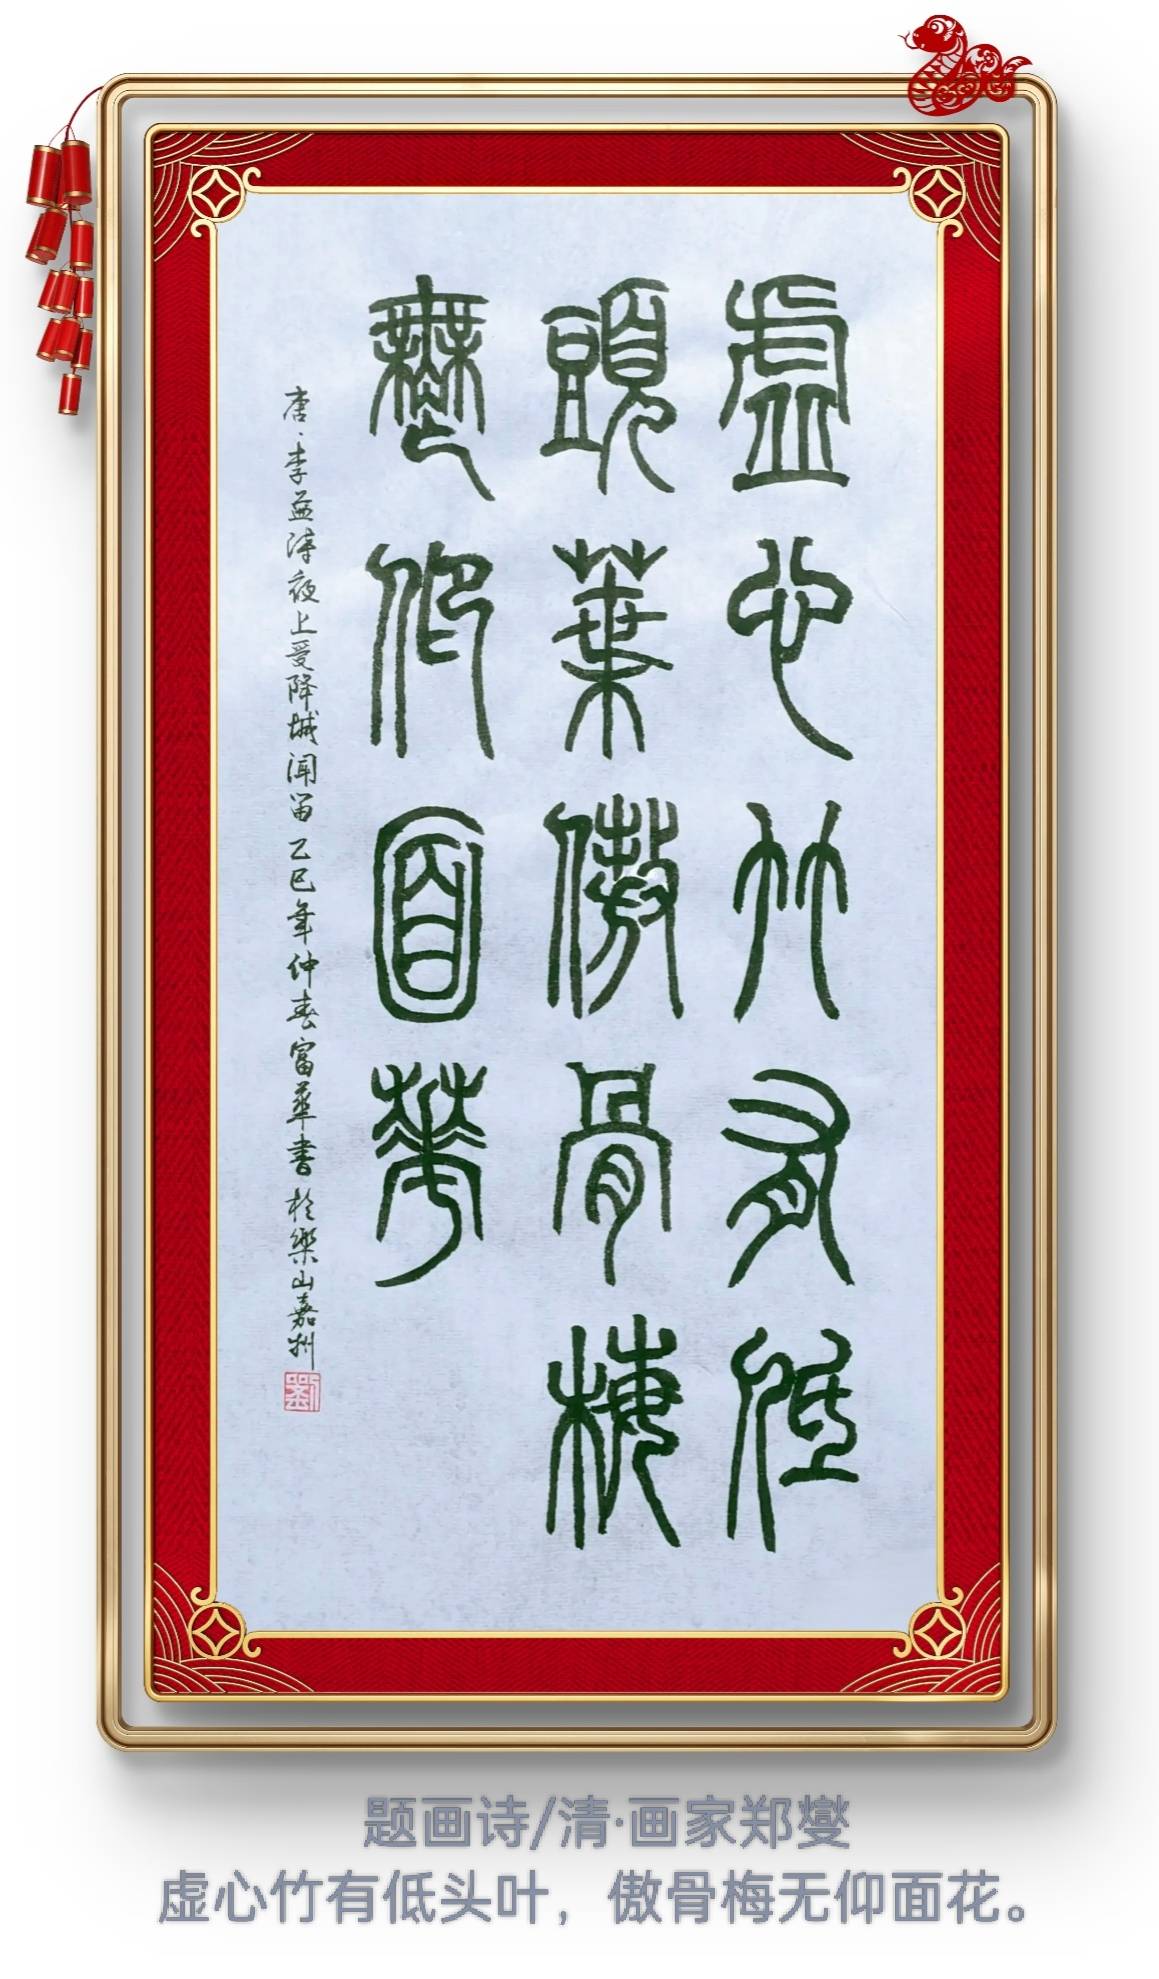 虛心竹有低
頭葉傲骨梅
無仰面華
唐·李益诗夜上受降城闻笛乙巳年仲春富華書於樂山嘉州
劉
题画诗/清·画家郑燮
虚心竹有低头叶，傲骨梅无仰面花。